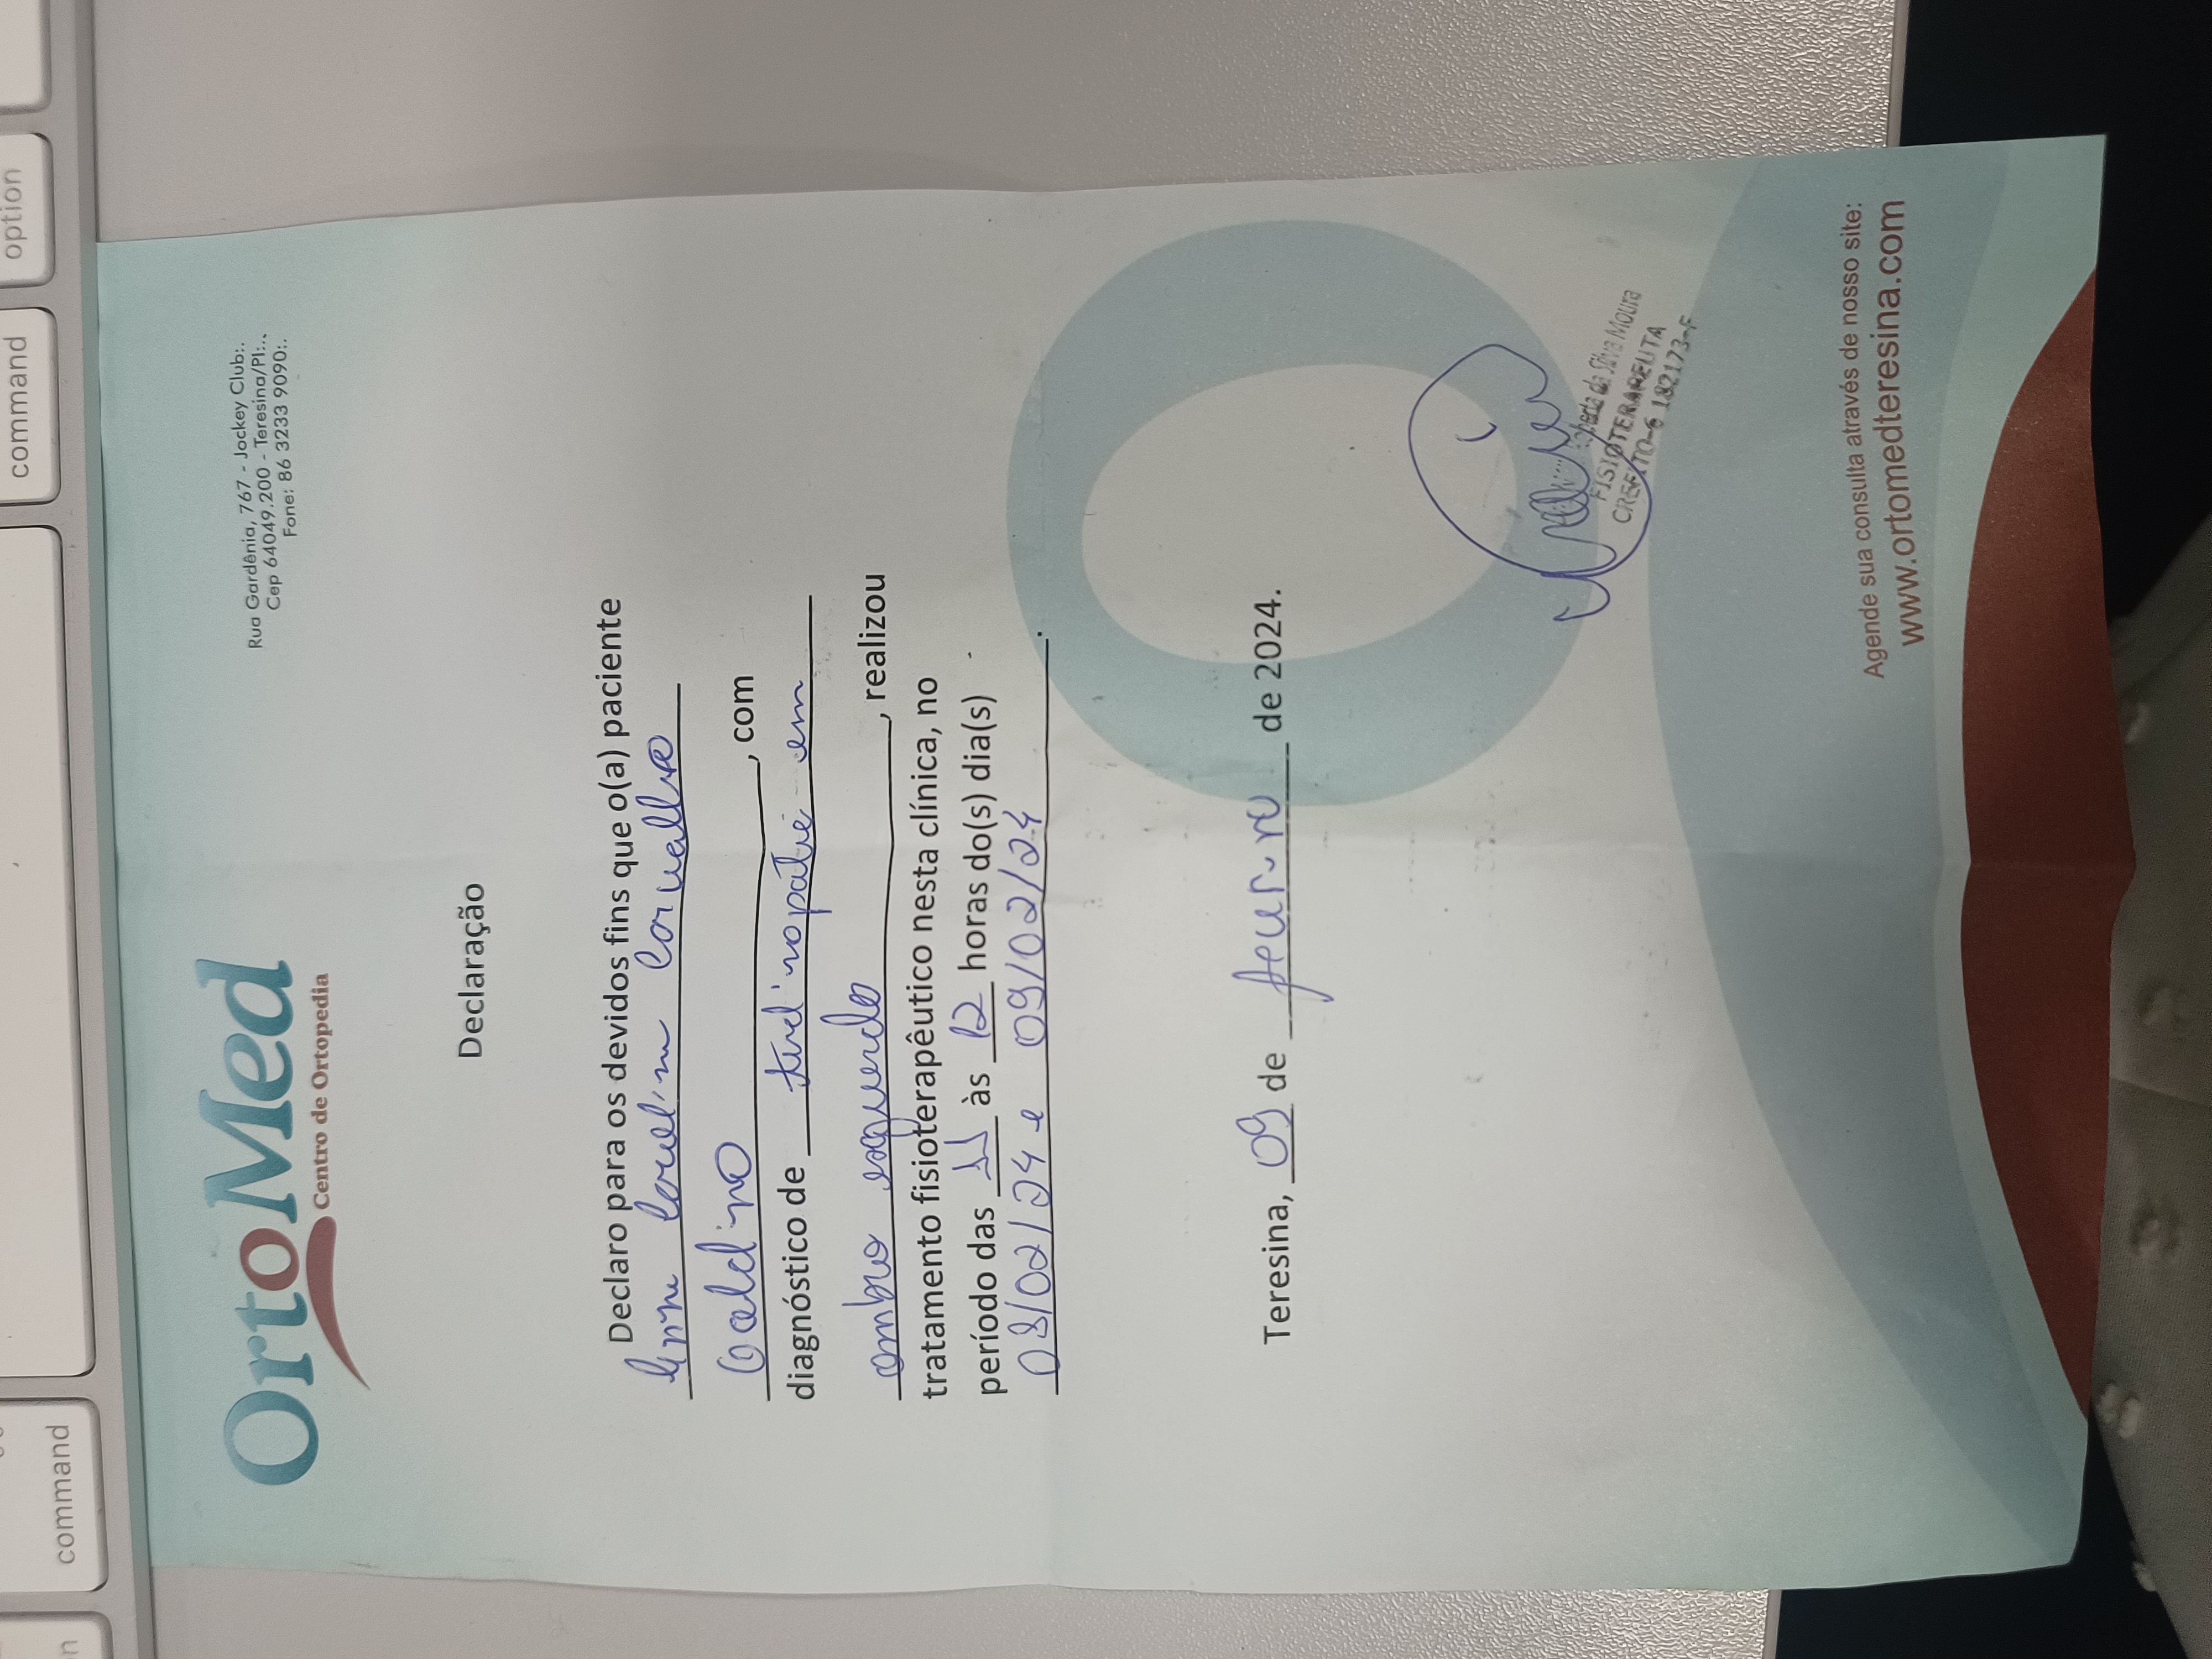 command
command
option
OrtoMed
Centro de Ortopedia
Rua Gardênia, 767 - Jockey Club:.
Cep 64049.200 - Teresina/PI:..
Fone: 86 3233 9090:.
Declaração
Declaro para os devidos fins que o(a) paciente
Carvalho
Galdino, com
diagnóstico de tendinopatia em
ombro esquerdo, realizou
tratamento fisioterapêutico nesta clínica, no
período das 11 às 12 horas do(s) dia(s)
08/02/24 e 09/02/24.
Teresina, 09 de fevereiro de 2024.
Roberta da Silva Moura
FISIOTERAPEUTA
CREFITO-6 182173-F
Agende sua consulta através de nosso site:
www.ortomedteresina.com